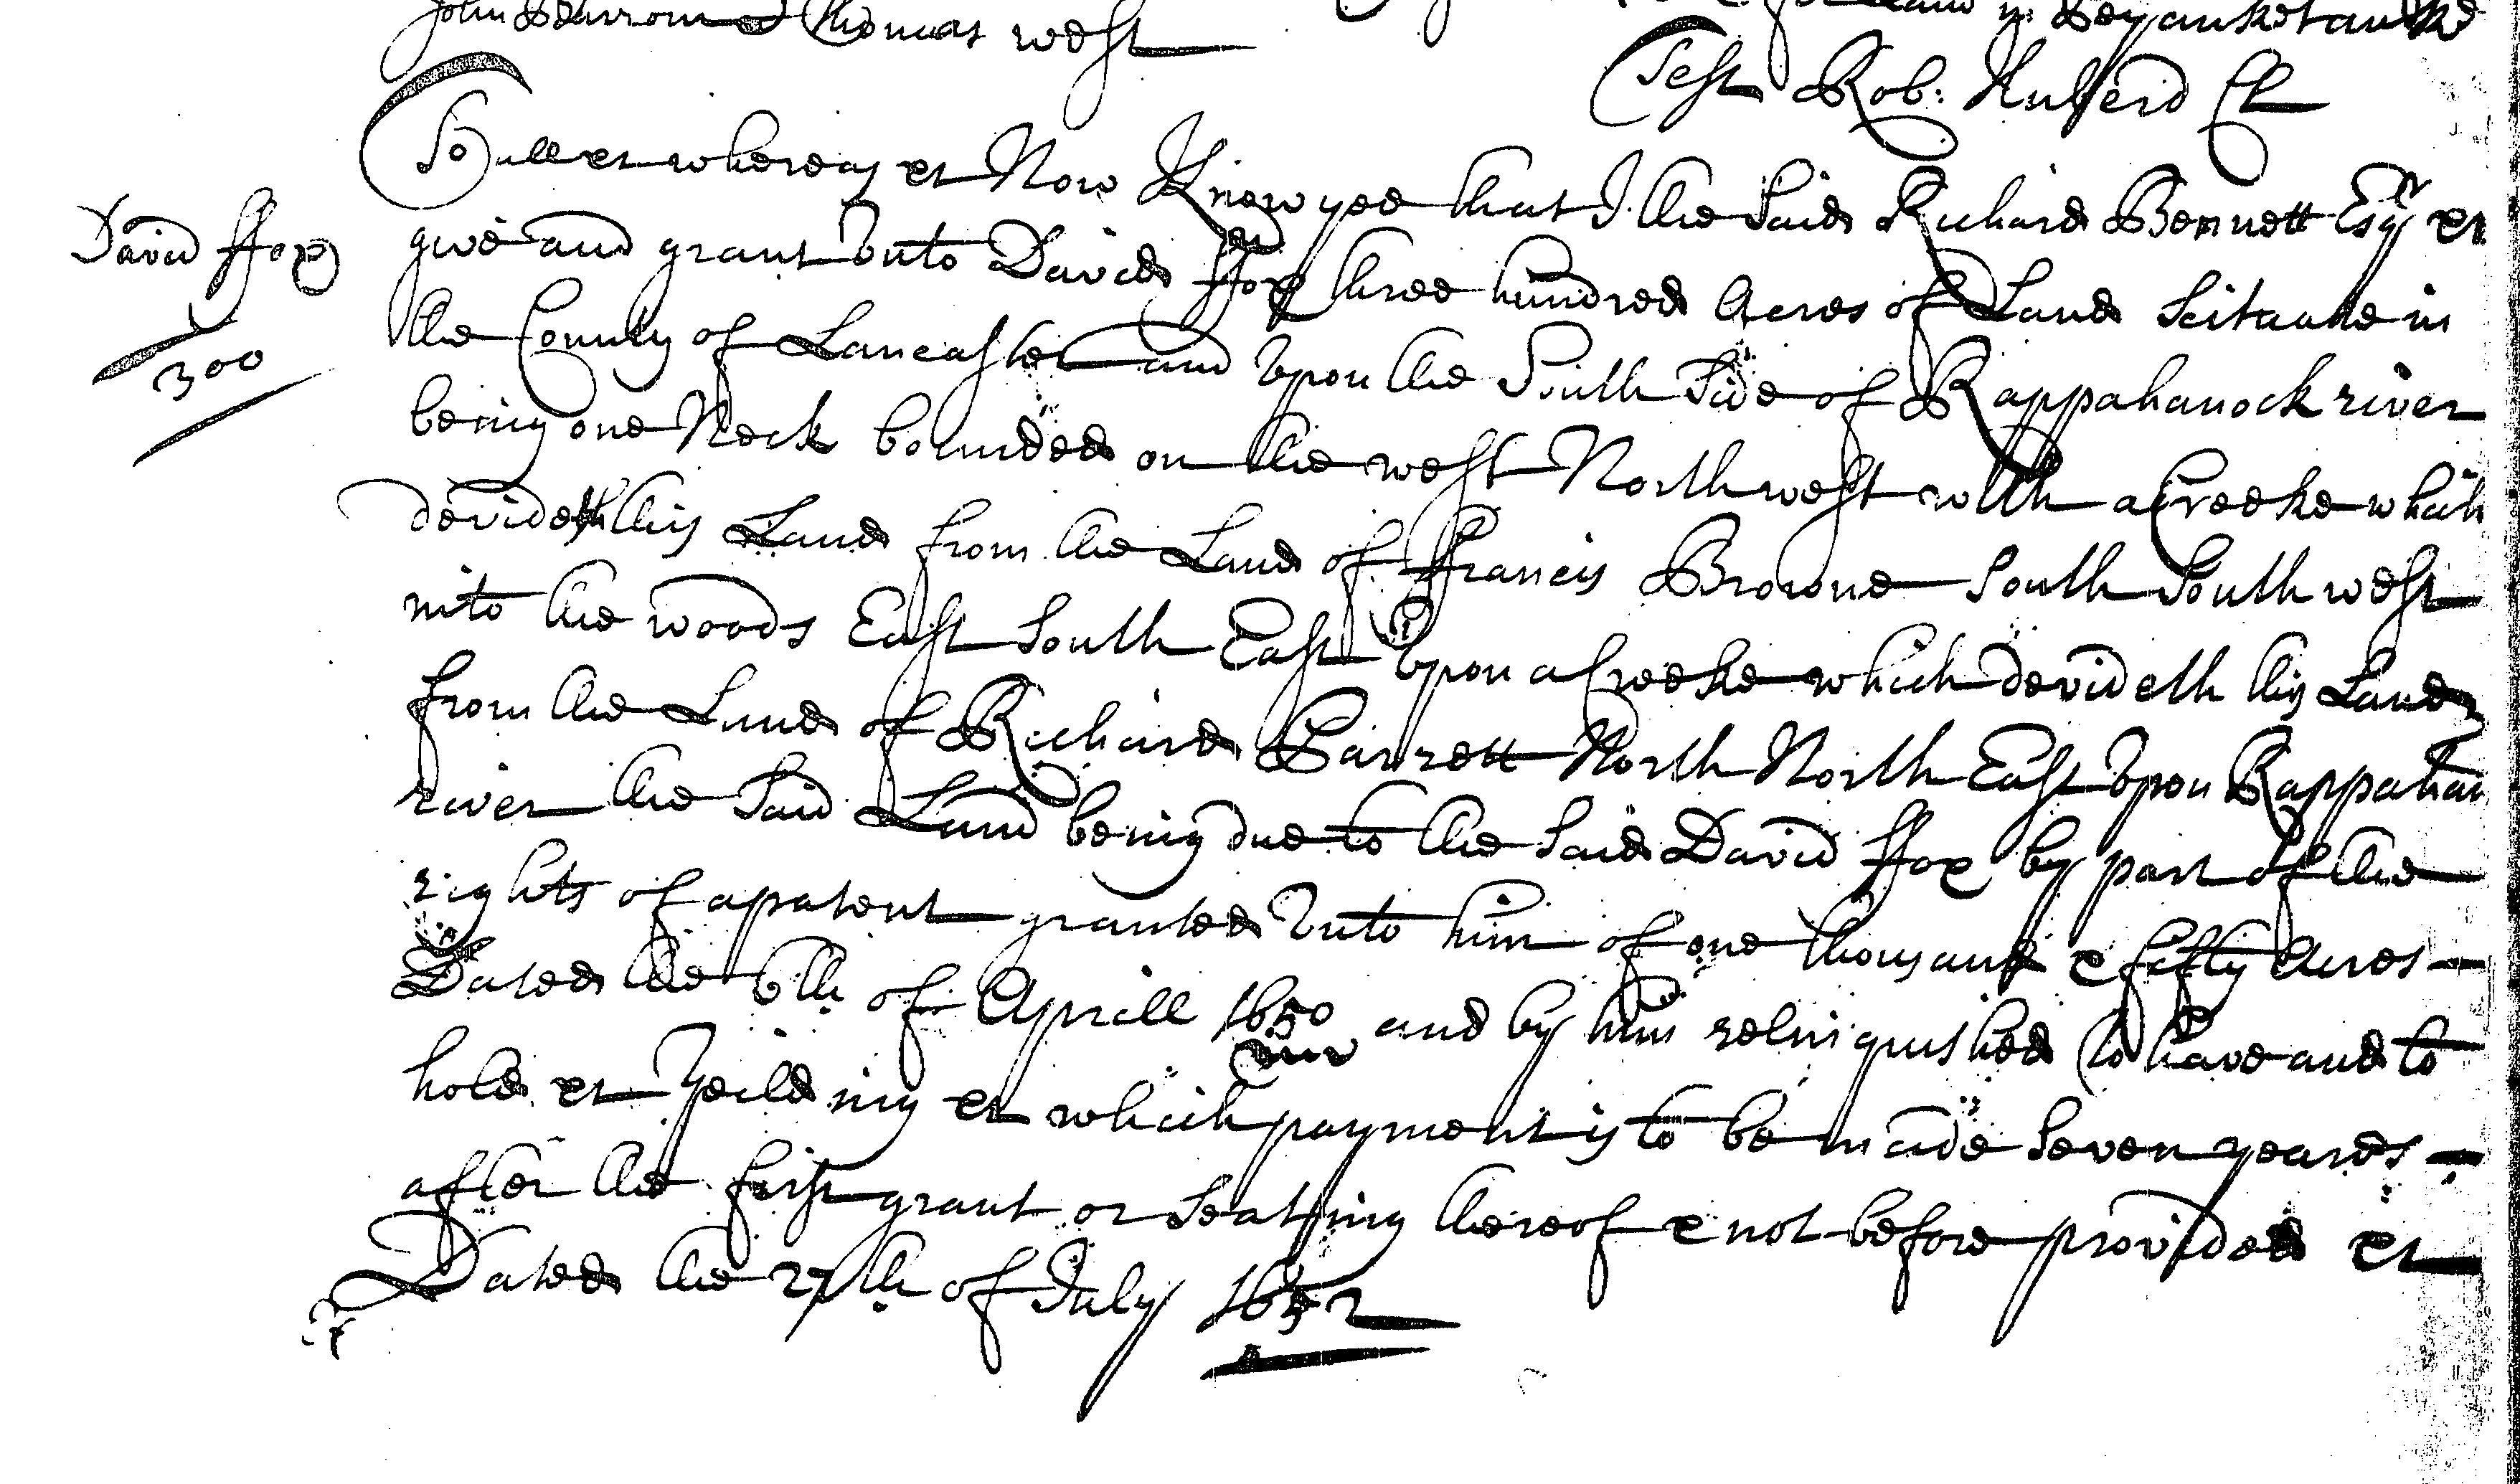 John Barrom Thomas west
Test Rob: Huberd Cl
To all et whereas et Now Know yee that I the Said Richard Bennett Esqr et
David ffox
300
give and grant Vnto David ffox three hundred Acres of Land Scituate in
the County of Lancaster and Vpon the South Side of Rappahanock river
being one Neck bounded on the west North west with a Creeke which
devideth this Land from the Land of ffrancis Browne South South west
into the woods East South East Vpon a Creeke which devideth this Land
from the Land of Richard Parrett North North East Vpon Rappahan
river the Said Land being due to the Said David ffox by part of the
rights of a patent granted Vnto him of one thousand & fifty Acres
Dated the 6th of Aprill 1650 and by him relinquished to have and to
hold et Yeilding et which payment is to be made Seven yeares
after the first grant or Seating thereof & not before provided et
Dated the 27th of July 1652